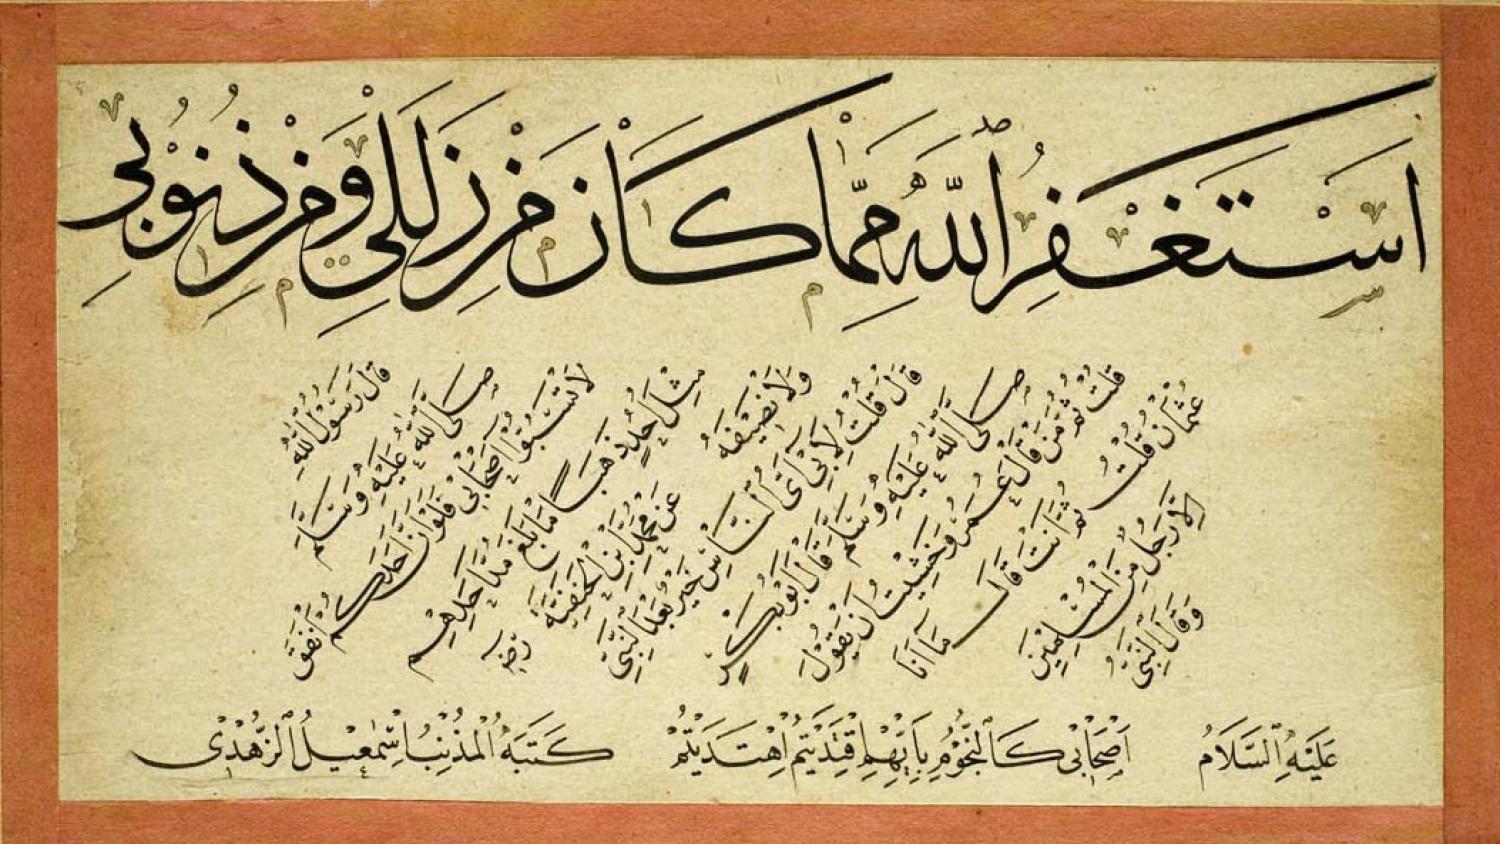 اَسْتَغْفِرُ اللّٰهَ مِمَّا كَانَ مِنْ زَلَلِي وَمِنْ ذُنُوبِي
قَالَ رَسُولُ اللّٰهِ
صَلَّى اللّٰهُ عَلَيْهِ وَسَلَّمَ
لَا تَسُبُّوا اَصْحَابِي فَلَوْ اَنَّ اَحَدَكُمْ اَنْفَقَ
مِثْلَ اُحُدٍ ذَهَبًا مَا بَلَغَ مُدَّ اَحَدِهِمْ
وَلَا نَصِيفَهُ
عَنْ مُحَمَّدِ ابْنِ الْحَنَفِيَّةِ رضه
قَالَ قُلْتُ لِاَبِي اَيُّ النَّاسِ خَيْرٌ بَعْدَ النَّبِيِّ
صَلَّى اللّٰهُ عَلَيْهِ وَسَلَّمَ قَالَ اَبُو بَكْرٍ
قُلْتُ ثُمَّ مَنْ قَالَ عُمَرُ وَخَشِيتُ اَنْ يَقُولَ
عُثْمَانُ قُلْتُ ثُمَّ اَنْتَ قَالَ مَا اَنَا
اِلَّا رَجُلٌ مِنَ الْمُسْلِمِينَ
وَقَالَ النَّبِيُّ
عَلَيْهِ السَّلَامُ اَصْحَابِي كَالنُّجُومِ بِاَيِّهِمِ اقْتَدَيْتُمُ اهْتَدَيْتُمْ كَتَبَهُ الْمُذْنِبُ اِسْمٰعِيلُ الزُّهْدِي